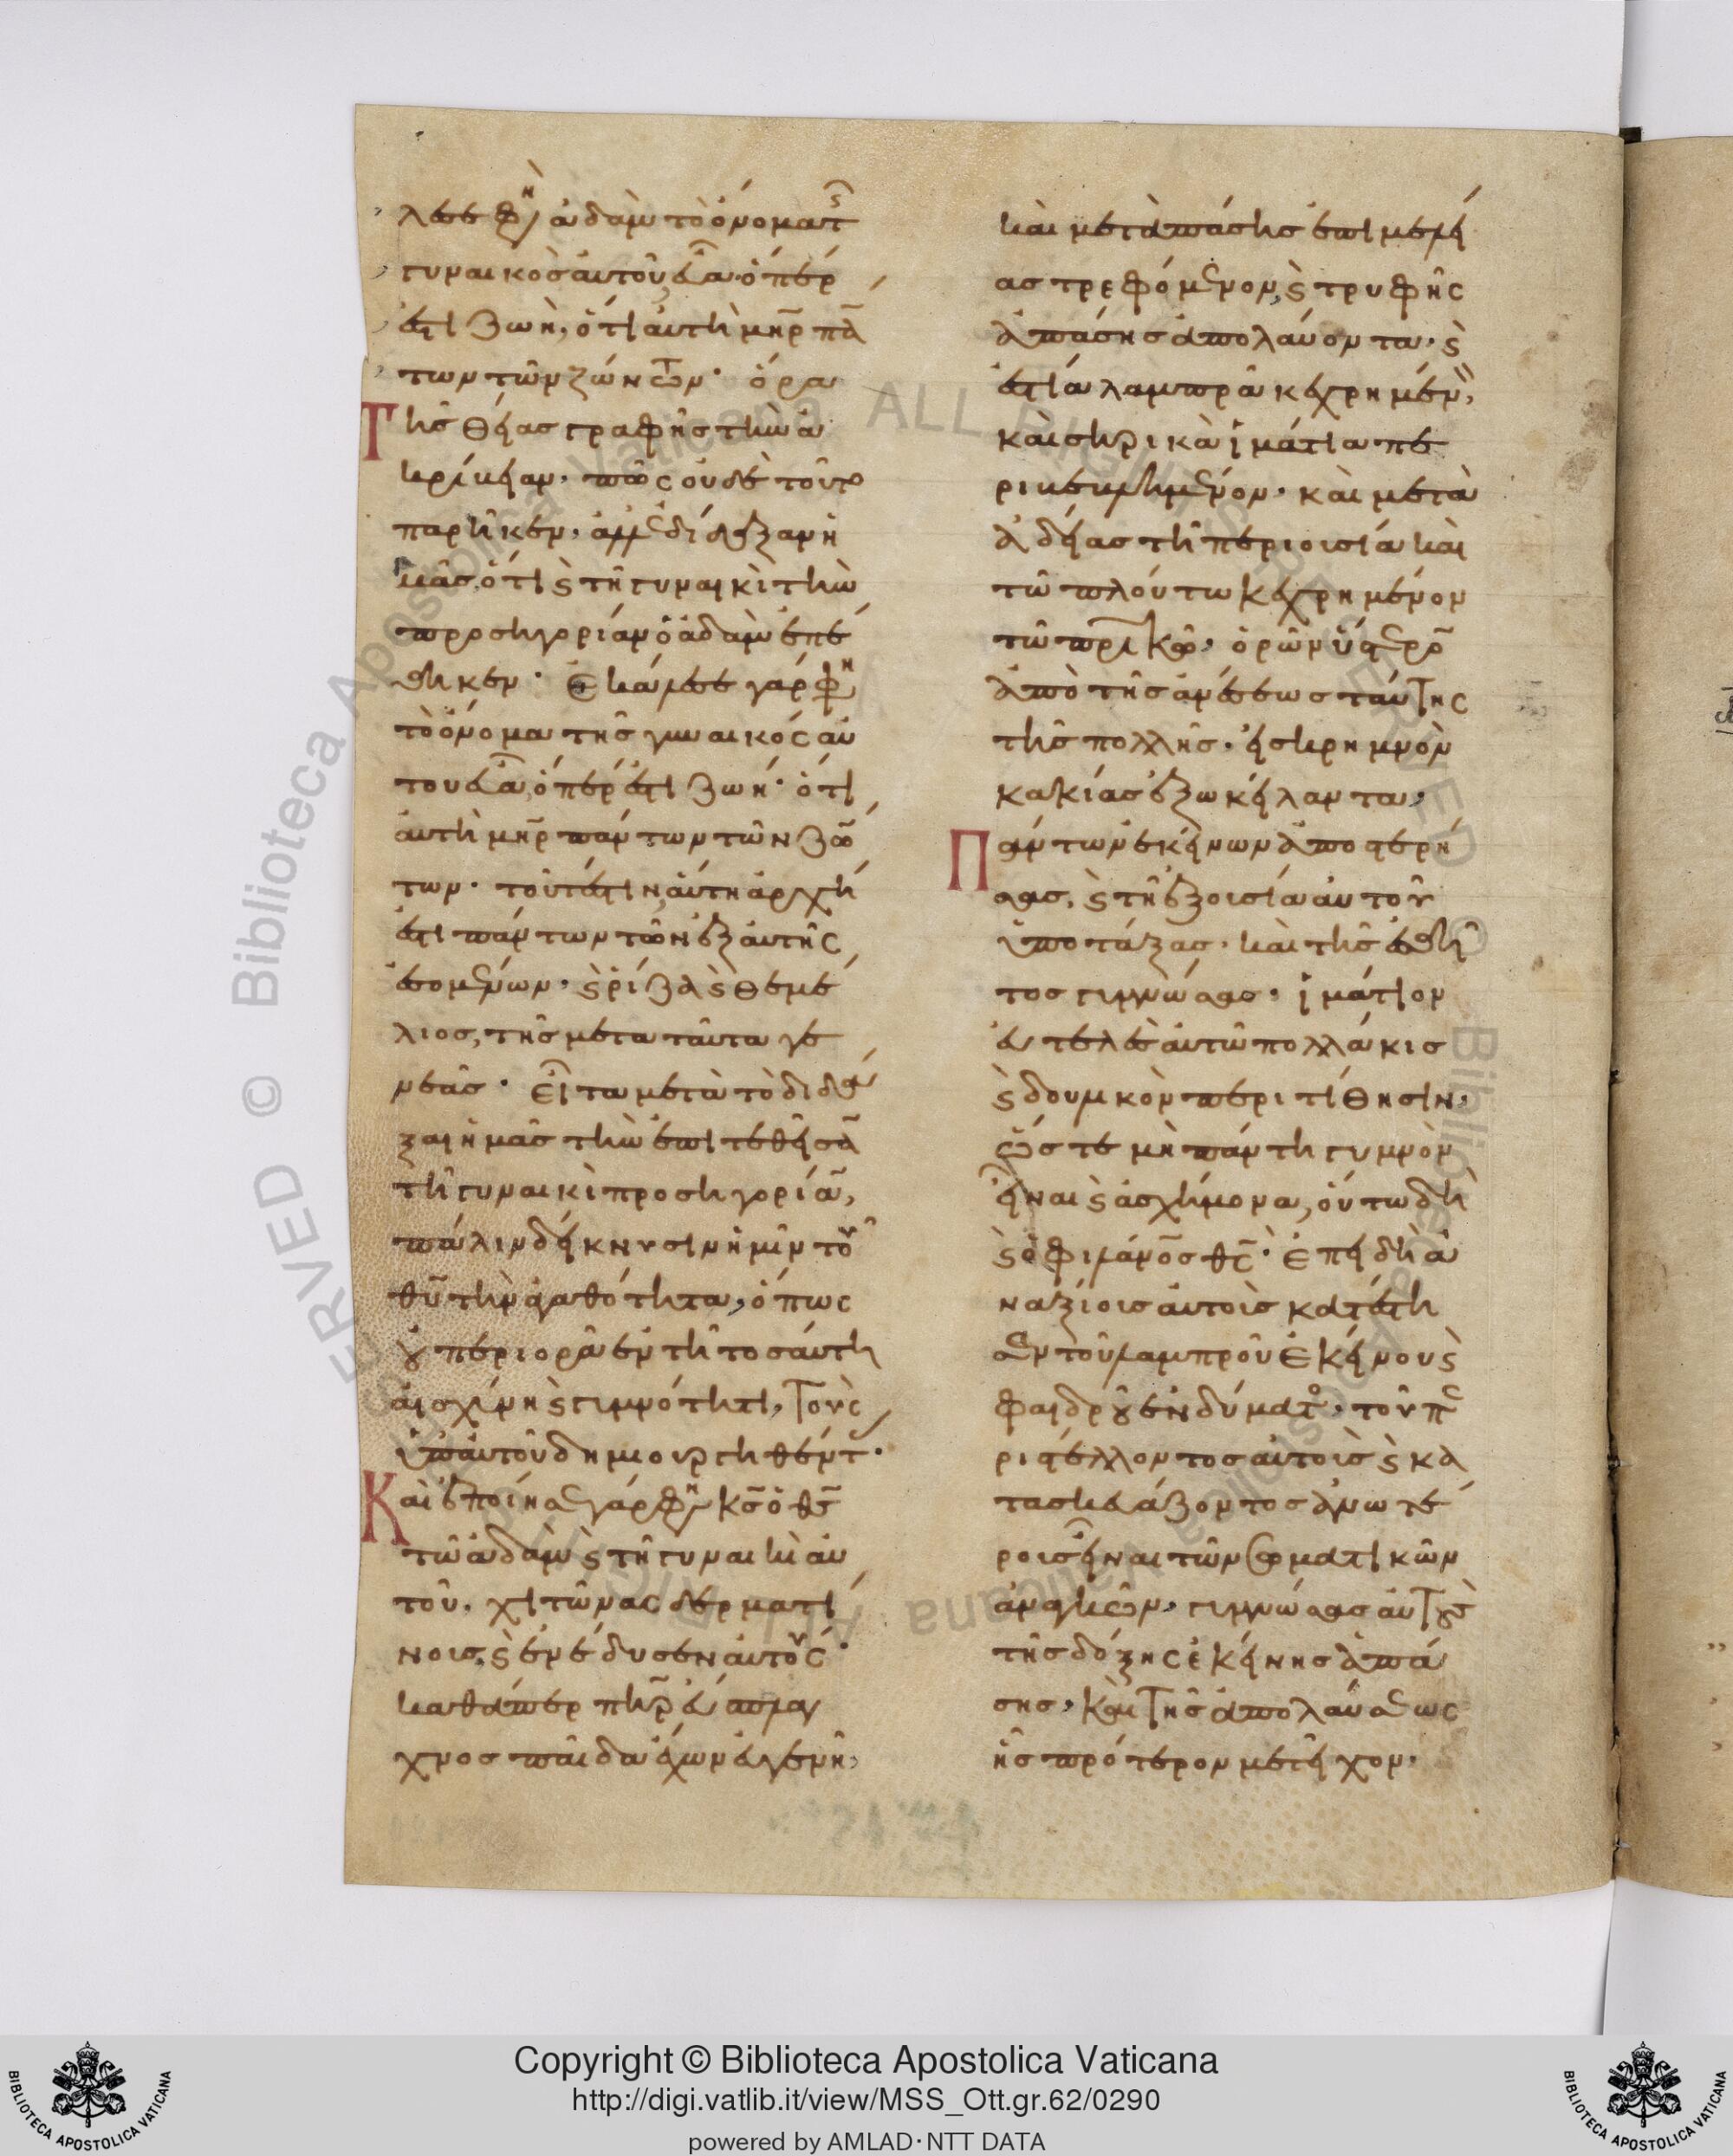 λεσε φη(σὶν) ἀδὰμ τὸ ὄνομα τῆς
γυναικὸς αὐτοῦ εὔα, ὅπερ
ἐστὶ ζωή, ὅτι αὐτὴ μηρ πάν
των τῶν ζώντων. ὅρα
Τῆς θείας γραφῆς τὴν ἀ
κρίβειαν. πῶς οὐδὲ τοῦτο
παρῆκεν, ἀλλ' ἐδίδαξεν ἡ
μᾶς, ὅτι ϗ τῆ γυναικὶ τὴν
προσηγορίαν ὁ ἀδὰμ ἐπέ
θηκεν. Ἐκάλεσε γάρ φη
τὸ ὄνομα τῆς γυναικός αὐ
του εὔα, ὅπέρ ἐστι ζωή. ὅτι
αὐτὴ μηρ πάντων τῶν ζών
των. τουτέστιν, αὕτη ἀρχή
ἐστι πάντων τῶν ἐξ αὐτῆς
ἐσομένων. ϗ ῥίζα ϗ θεμέ
λιος, τῆς μετα ταῦτα γε
νεᾶς. Εἶτα μετὰ τὸ διδά
ξαι ἡμᾶς τὴν ἐπιτεθεῖσαν
τῆ γυναικὶ προσηγορίαν,
πάλιν δείκνυσιν ἡμῖν τοῦ
θυ τὴν ἀγαθότητα, ὅπως
οὐ περιορᾶ ἐν τῆ τοσαύτη
αἰσχύνη ϗ γυμνότητι, τοὺς
ὑπ αὐτοῦ δημιουργηθέντας.
Καὶ ἐποίησε γάρ φη κς ὁ θς
τῶ ἀδὰμ ϗ τῆ γυναικὶ αὐ
τοῦ, χιτῶνας δερματί
νους, ϗ ἐνέδυσεν αὐτούς.
καθάπερ πηρ εὔσπλαγ
χνος παῖδα ἔχων εὐγενῆ,
καὶ μετὰ πάσης ἐπιμελεί
ας τρεφόμενον, ϗ τρυφῆς
ἁπάσης ἀπολαύοντα, ϗ
ἐσθῆτι λαμπρᾶ κεχρημένον,
καὶ σηρικὰ ἱμάτια πε
ρικείμενον. καὶ μετὰ
ἀδείας τῆ περιουσία καὶ
τῶ πλούτω κεχρημένον
τῶ πρικῶ, ὁρῶν ὕστερον
ἀπὸ τῆς ἀνέσεως ταύτης
τῆς πολλῆς, εἰς κρημνὸν
κακίας ἐξωκείλαντα,
Πάντων ἐκείνων ἀποστερή
σας, ϗ τῆ ἐξουσία αὐτοῦ
ὑποτάξας. καὶ τῆς ἐσθῆ
τος γυμνώσας. ἱμάτιον
εὐτελὲς αὐτῶ πολλάκις
ϗ δουλικὸν περιτίθησιν,
ὥστε μὴ πάντη γυμνὸν
εἶναι ϗ ἀσχήμονα, οὕτω δὴ
ϗ ὁ φιλάνος θς. Ἐπειδὴ ἀ
ναξίους αὐτοὺς κατέστη
σεν τοῦ λαμπροῦ ἐκείνου ϗ
φαιδροῦ ἐνδύματος, τοῦ πε
ριστέλλοντος αὐτοὺς ϗ κα
τασκευάζοντος ἀνωτέ
ρους εἶναι τῶν σωματικῶν
ἀναγκῶν, γυμνώσας αὐτοὺς
τῆς δόξης ἐκείνης ἁπά
σης, καὶ τῆς ἀπολαύσεως
ἧς πρότερον μετεῖχον.
Copyright © Biblioteca Apostolica Vaticana
http://digi.vatlib.it/view/MSS_Ott.gr.62/0290
powered by AMLAD·NTT DATA
BIBLIOTECA APOSTOLICA VATICANA
BIBLIOTECA APOSTOLICA VATICANA